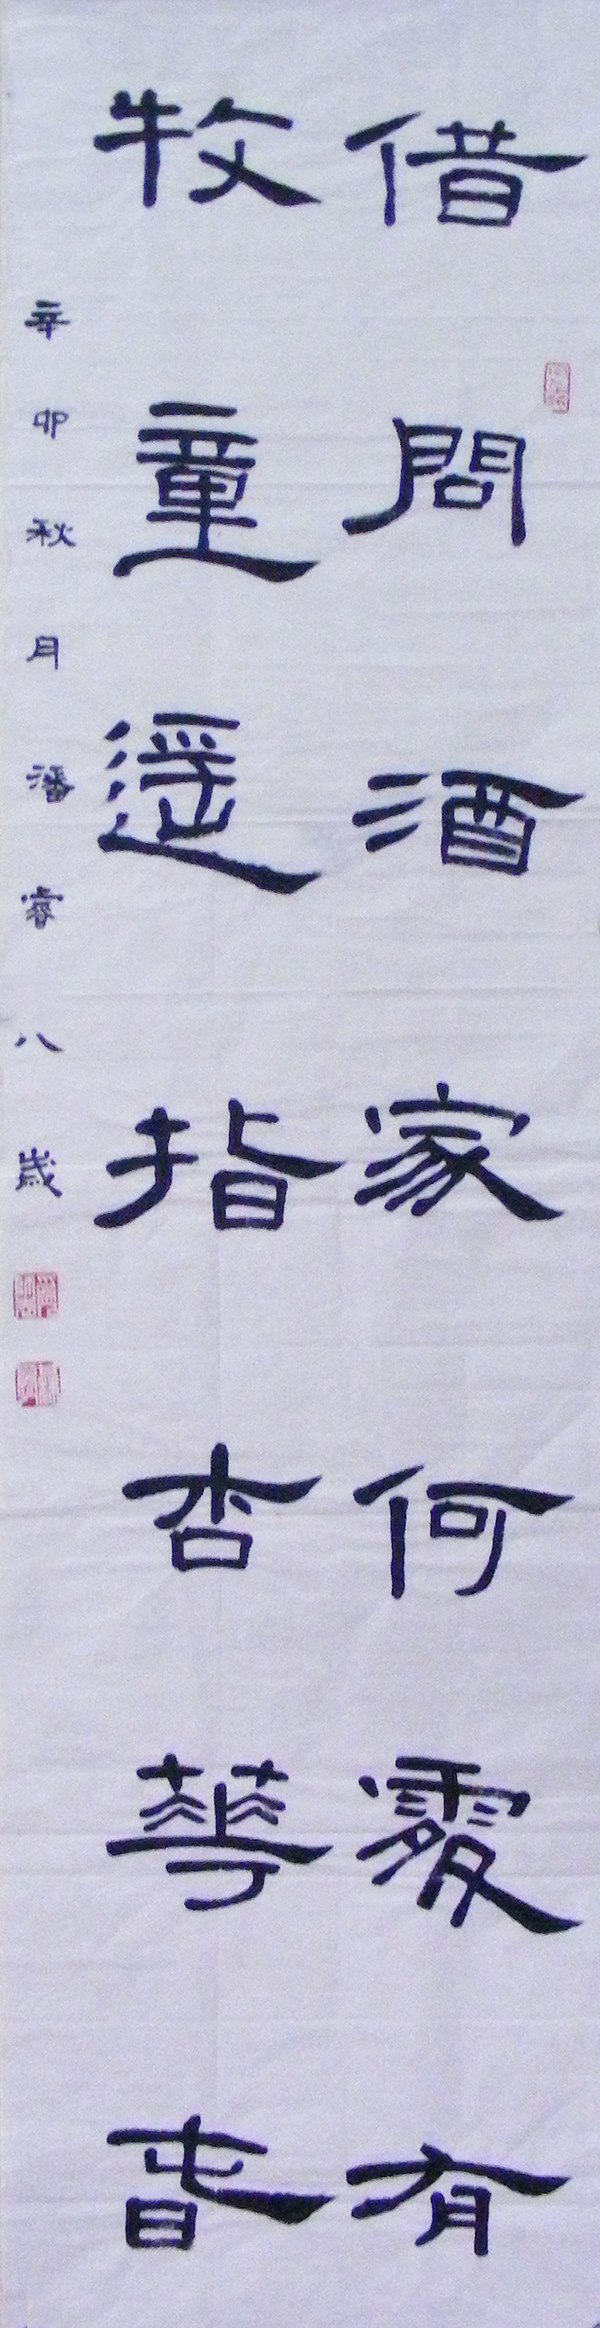 借問酒家何處有
牧童遙指杏華旾
辛卯秋月潘睿八歲